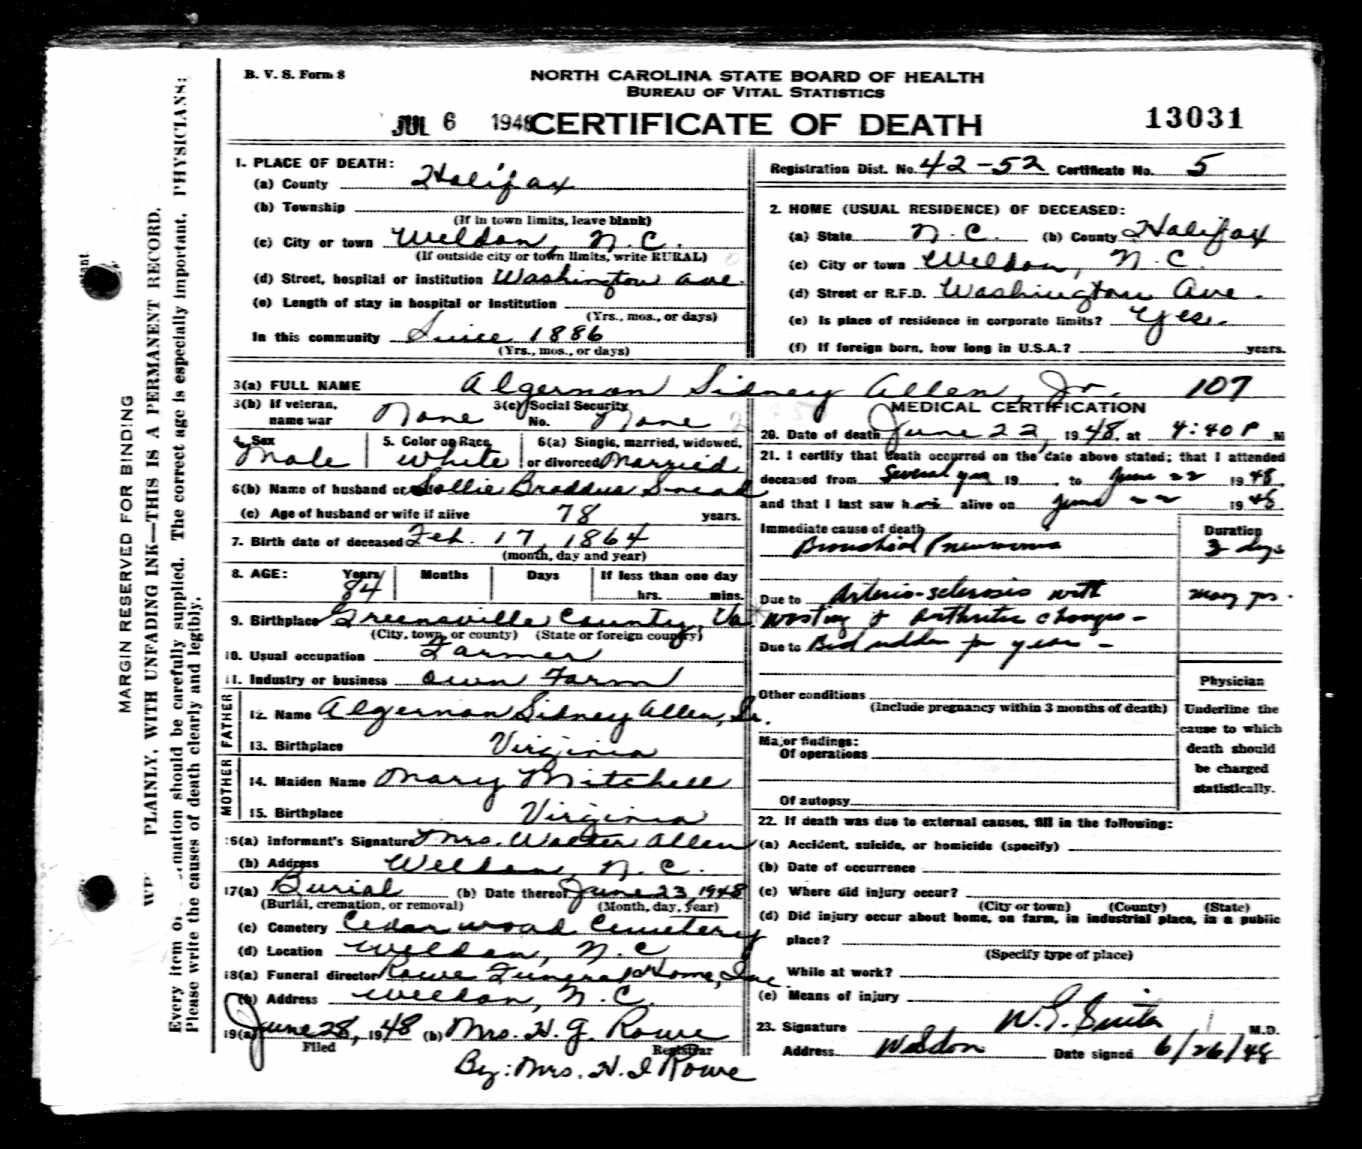 B. V. S. Form 8
NORTH CAROLINA STATE BOARD OF HEALTH
BUREAU OF VITAL STATISTICS
JUL 6 1948 CERTIFICATE OF DEATH 13031
1. PLACE OF DEATH:
(a) County Halifax
(b) Township
(If in town limits, leave blank)
(c) City or town Weldon, N.C.
(If outside city or town limits, write RURAL)
(d) Street, hospital or institution Washington Ave.
(e) Length of stay in hospital or institution
(Yrs., mos., or days)
In this community Since 1886
(Yrs., mos., or days)
Registration Dist. No. 42-52 Certificate No. 5
2. HOME (USUAL RESIDENCE) OF DECEASED:
(a) State N.C. (b) County Halifax
(c) City or town Weldon, N.C.
(d) Street or R.F.D. Washington Ave.
(e) Is place of residence in corporate limits? Yes.
(f) If foreign born, how long in U.S.A.? years.
3(a) FULL NAME Algernon Sidney Allen, Jr. 107
3(b) If veteran, name war None 3(c) Social Security No. None
4. Sex Male 5. Color or Race White 6(a) Single, married, widowed, or divorced Married
6(b) Name of husband or Sallie Braddus
(c) Age of husband or wife if alive 78 years.
7. Birth date of deceased Feb. 17, 1864
(month, day and year)
8. AGE: Years 84 Months Days If less than one day
hrs. mins.
9. Birthplace Greensville County, Va
(City, town, or county) (State or foreign country)
10. Usual occupation Farmer
11. Industry or business Own Farm
FATHER
12. Name Algernon Sidney Allen, Sr.
13. Birthplace Virginia
MOTHER
14. Maiden Name Mary Mitchell
15. Birthplace Virginia
16(a) Informant's Signature Mrs. Walter Allen
(b) Address Weldon, N.C.
17(a) Burial (b) Date thereof June 23, 1948
(Burial, cremation, or removal) (Month, day, year)
(c) Cemetery Cedarwood Cemetery
(d) Location Weldon, N.C.
18(a) Funeral director Rowe Funeral Home, Inc.
(b) Address Weldon, N.C.
19(a) June 28, 1948 (b) Mrs. H. G. Rowe
Filed Registrar
By: Mrs. H. I Rowe
MEDICAL CERTIFICATION
20. Date of death June 22, 1948. at 4:40 P M
21. I certify that death occurred on the date above stated; that I attended
deceased from Several yrs 19 , to June 22 1948,
and that I last saw him alive on June 22 1948.
Immediate cause of death Duration
Bronchial Pneumonia 3 days
Due to Arterio-sclerosis with many yrs.
wasting & Arthritic changes-
Due to Bed ridden for years -
Other conditions
(Include pregnancy within 3 months of death)
Major findings:
Of operations
Of autopsy
Physician
Underline the
cause to which
death should
be charged
statistically.
22. If death was due to external causes, fill in the following:
(a) Accident, suicide, or homicide (specify)
(b) Date of occurrence
(c) Where did injury occur?
(City or town) (County) (State)
(d) Did injury occur about home, on farm, in industrial place, in a public
place?
(Specify type of place)
While at work?
(e) Means of injury
23. Signature W. G. Suiter M.D.
Address Weldon Date signed 6/26/48
MARGIN RESERVED FOR BINDING
PLAINLY, WITH UNFADING INK—THIS IS A PERMANENT RECORD.
mation should be carefully supplied. The correct age is especially important. PHYSICIANS:
Every item of
Please write the causes of death clearly and legibly.